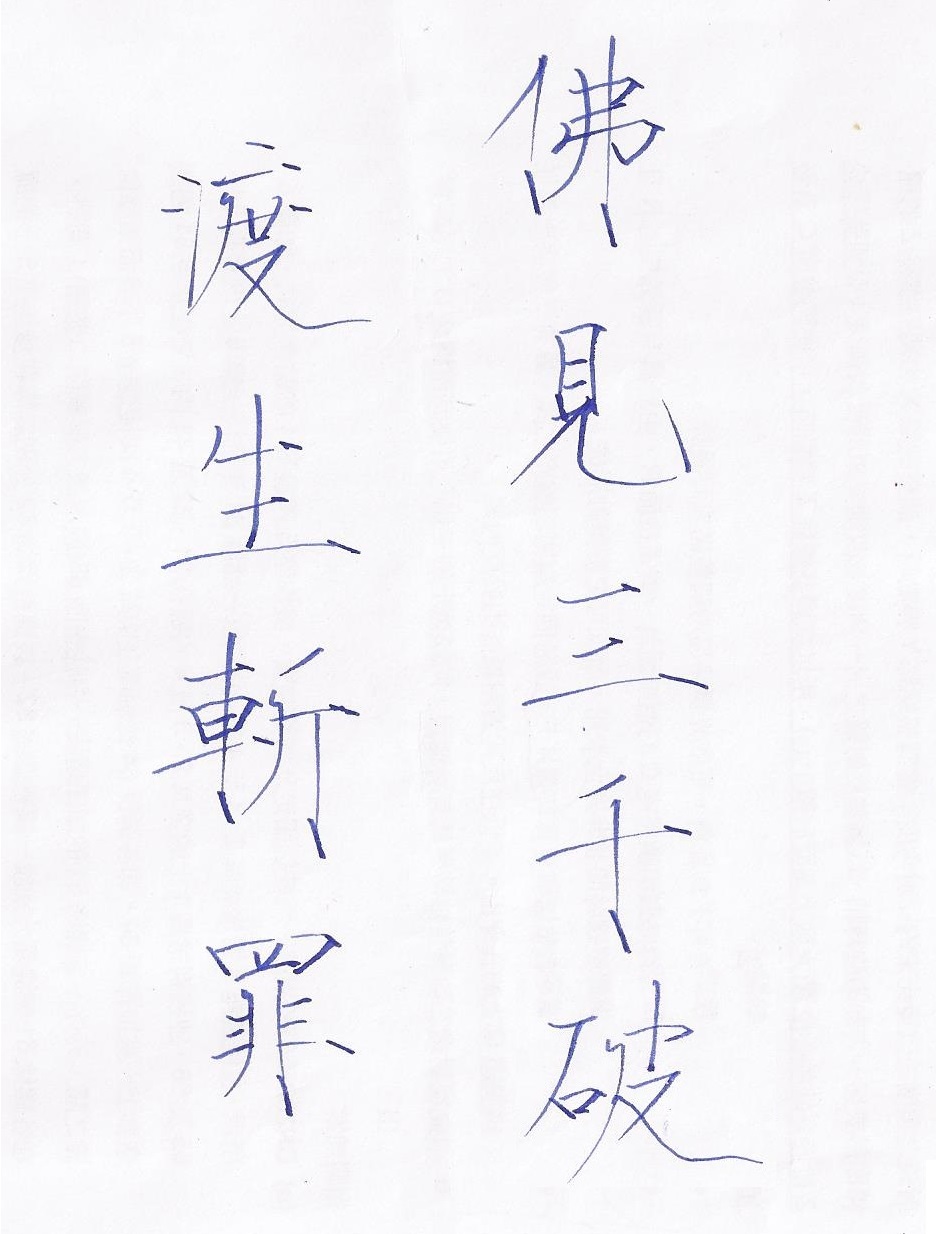 佛見三千破
渡生斬罪